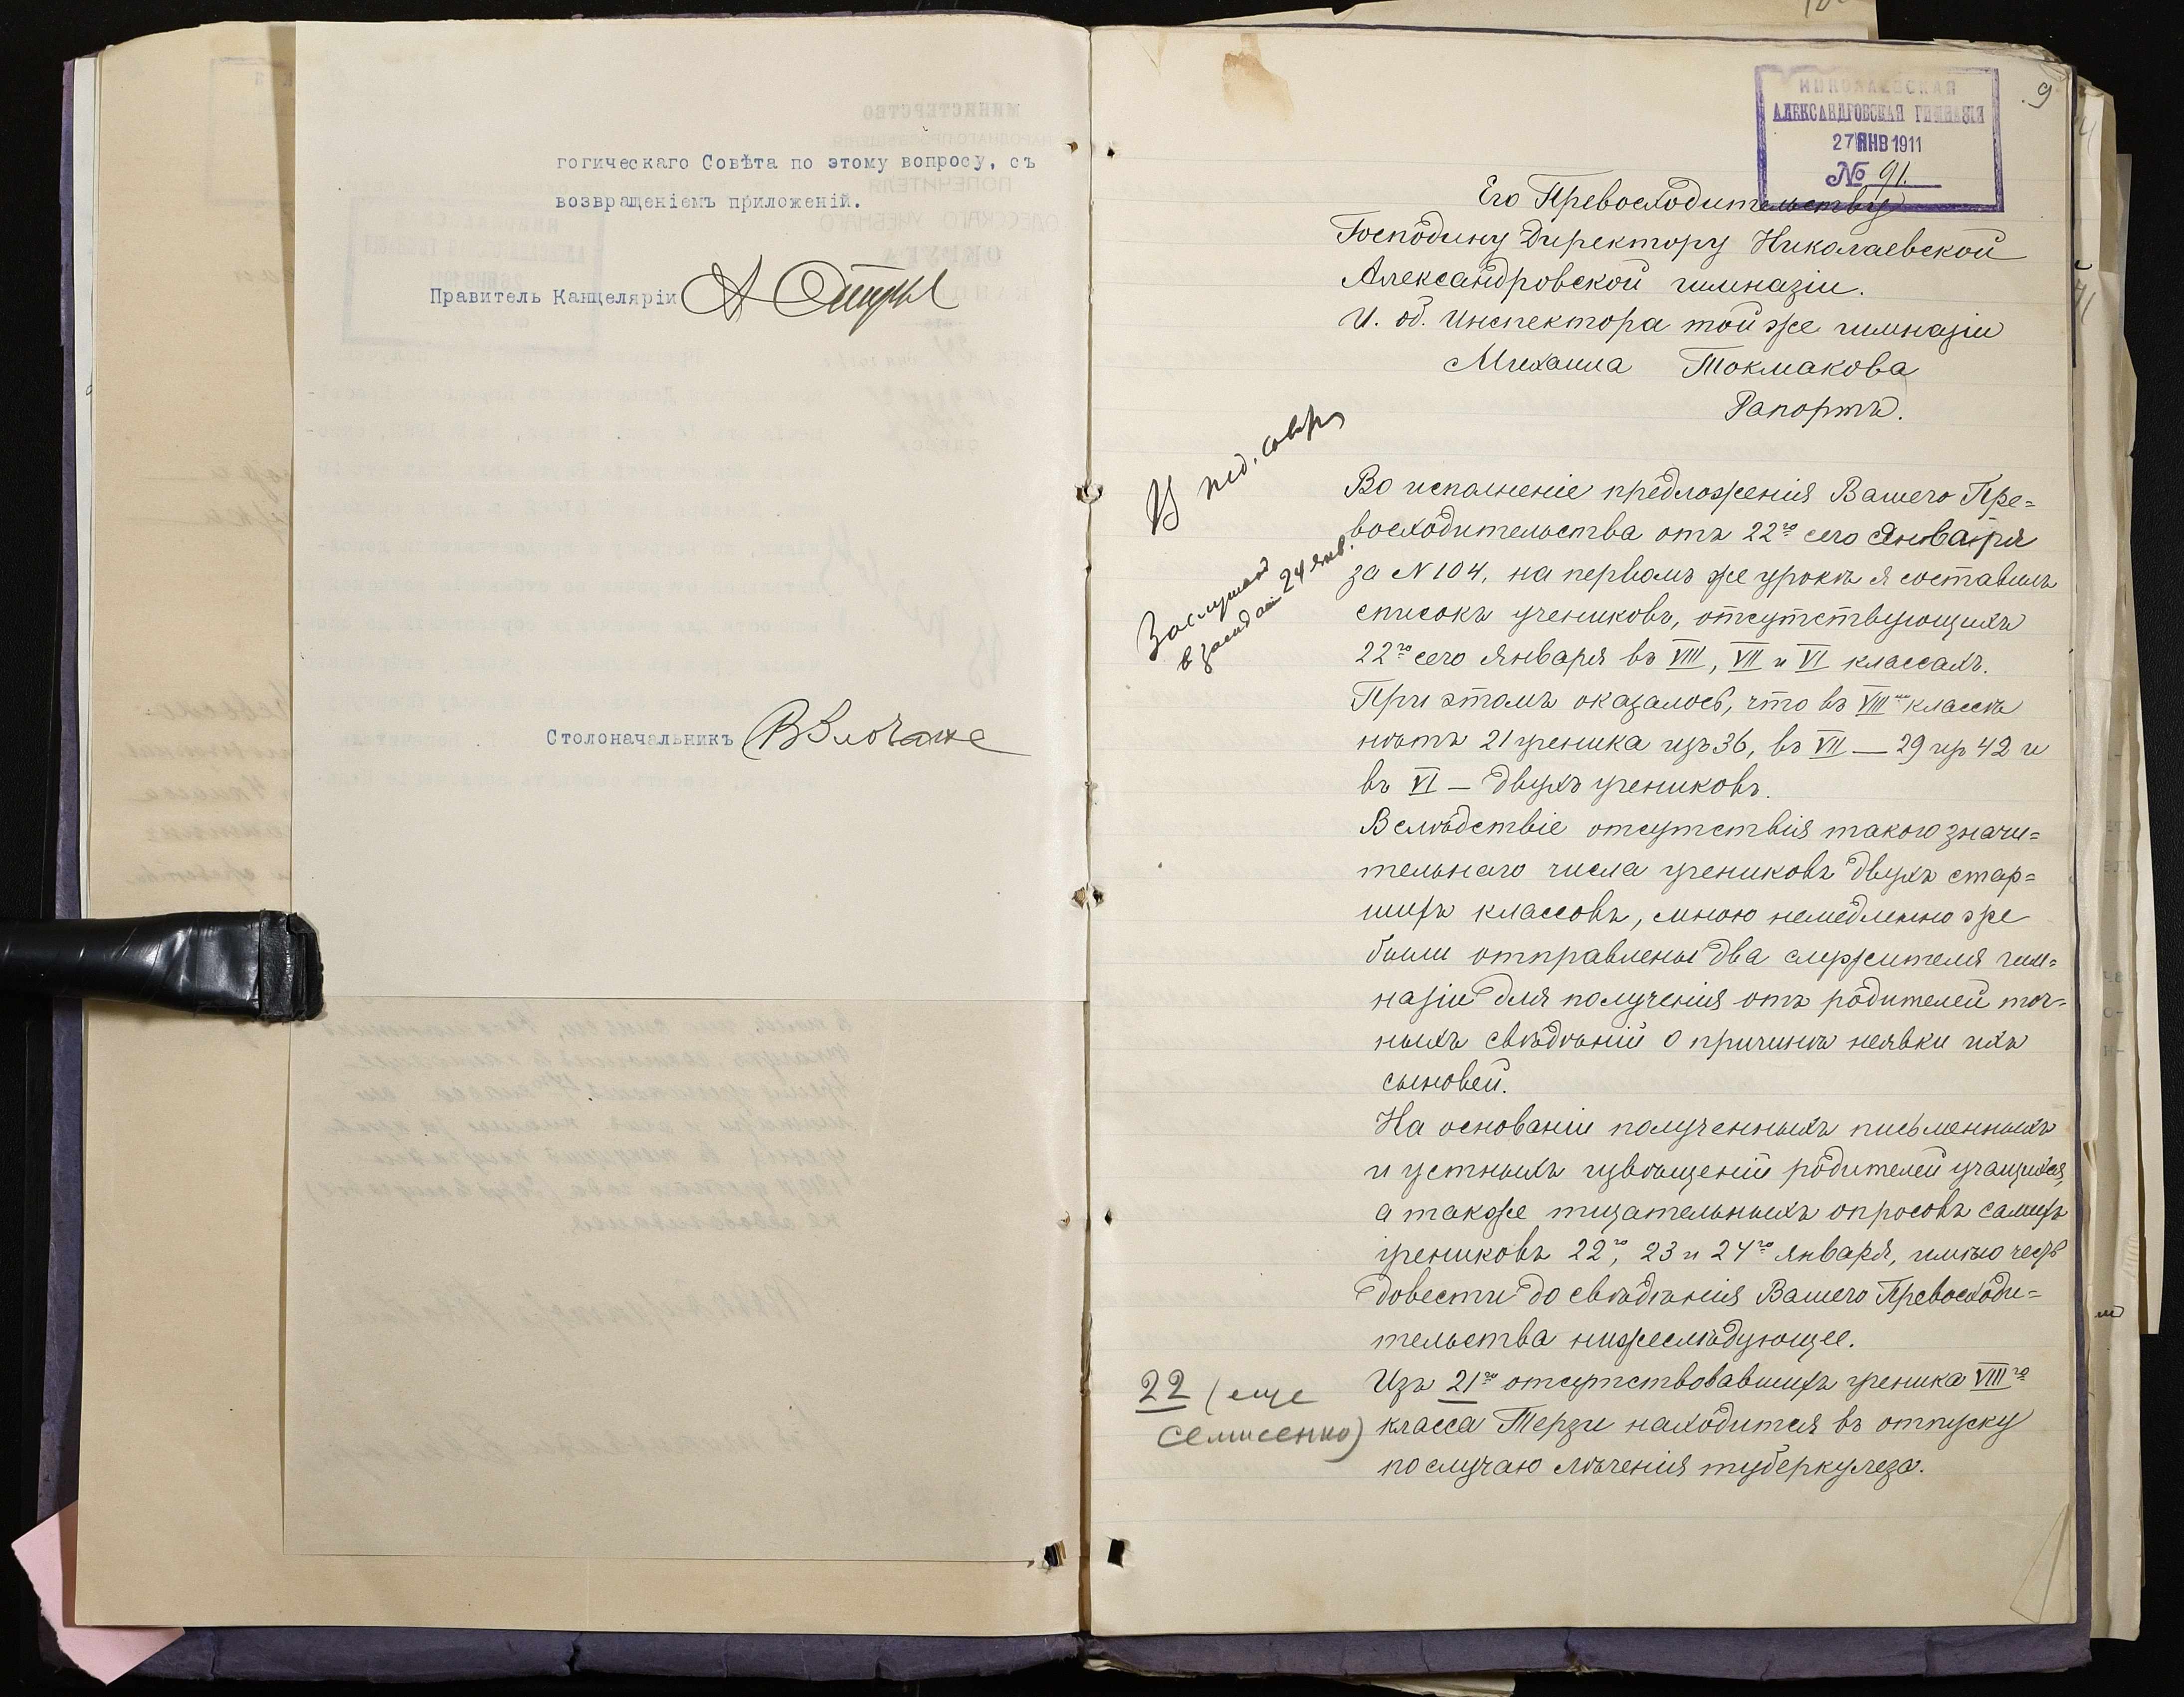 гогическаго Совѣта по этому вопросу, съ
возвращеніемъ приложеній.
Правитель Канцеляріи
Столоначальникъ
9
НИКОЛАЕВСКАЯ
АЛЕКСАНДРОВСКАЯ ГИМНАЗІЯ
27 ЯНВ 1911
№ 91.
Его Превосходительству
Господину Директору Николаевской
Александровской гимназіи.
И. об. Инспектора той же гимназіи
Михаила Токмакова
Рапортъ.
В пед. совѣтъ
Заслушано
в засѣдан 24 янв.
Во исполненіе предложенія Вашего Пре=
восходительства отъ 22го сего Января
за N 104, на первомъ же урокѣ я составилъ
списокъ учениковъ, отсутствующихъ
22го сего Января въ VIII, VII и VI классахъ.
При этомъ оказалось, что въ VIIIмъ классѣ
нѣтъ 21 ученика изъ 36, въ VII — 29 изъ 42 и
въ VI — двухъ учениковъ.
Вслѣдствіе отсутствія такого значи=
тельнаго числа учениковъ двухъ стар=
шихъ классовъ, мною немедленно же
были отправлены два служителя гим=
назіи для полученія отъ родителей точ=
ныхъ свѣдѣній о причинѣ неявки ихъ
сыновей.
На основаніи полученныхъ письменныхъ
и устныхъ извѣщеній родителей учащихся,
а также тщательныхъ опросовъ самихъ
учениковъ 22го, 23 и 24го Января, имѣю честь
довести до свѣдѣнія Вашего Превосходи=
тельства нижеслѣдующее.
22 (еще
Семисенко)
Изъ 21го отсутствовавшихъ ученика VIIIго
класса Терзи находится въ отпуску
по случаю лѣченія туберкулеза.